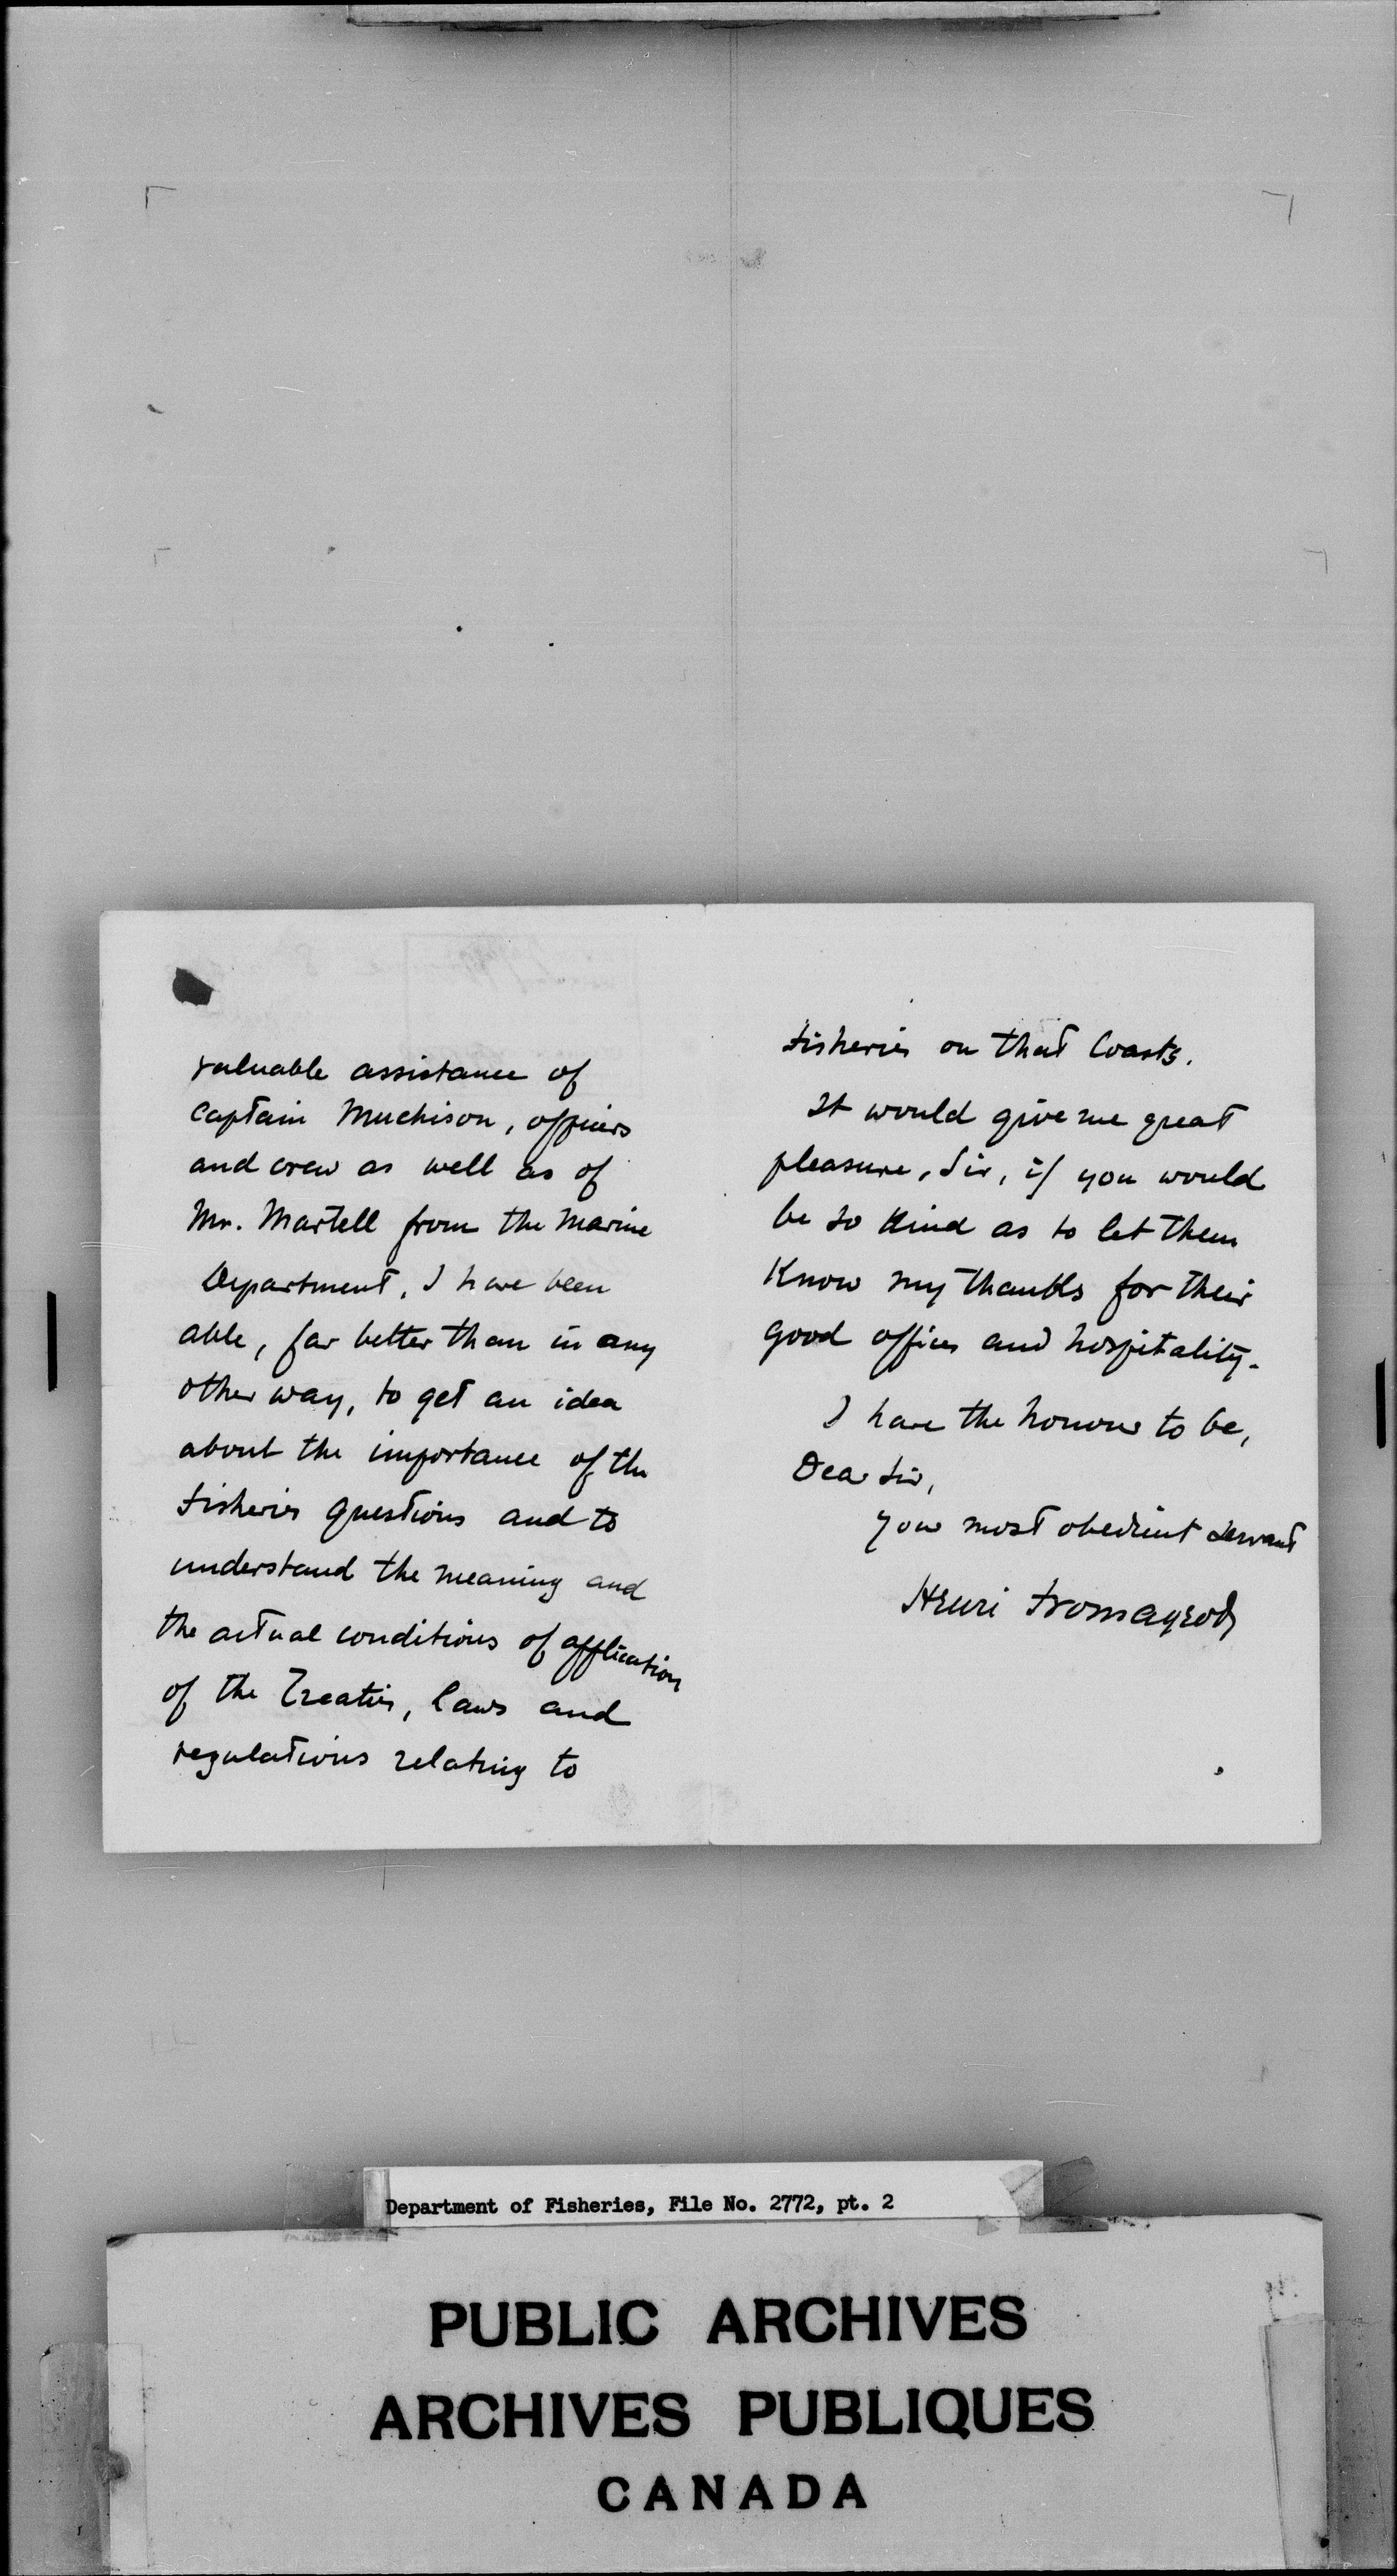 valuable assistance of
Captain Muchison, officers
and crew as well as of
Mr. Martell from the Marine
Department, I have been
able, far better than in any
other way, to get an idea
about the importance of the
fisheries questions and to
understand the meaning and
the actual conditions of application
of the Treaties, laws and
regulations relating to
fisheries on that Coasts.
It would give me great
pleasure, Sir, if you would
be so kind as to let them
Know my thanks for their
good offices and hospitality.
I have the honour to be,
Dear Sir,
your most obedient servant
Henri Fromageot
Department of Fisheries, File No. 2772, pt. 2
PUBLIC ARCHIVES
ARCHIVES PUBLIQUES
CANADA